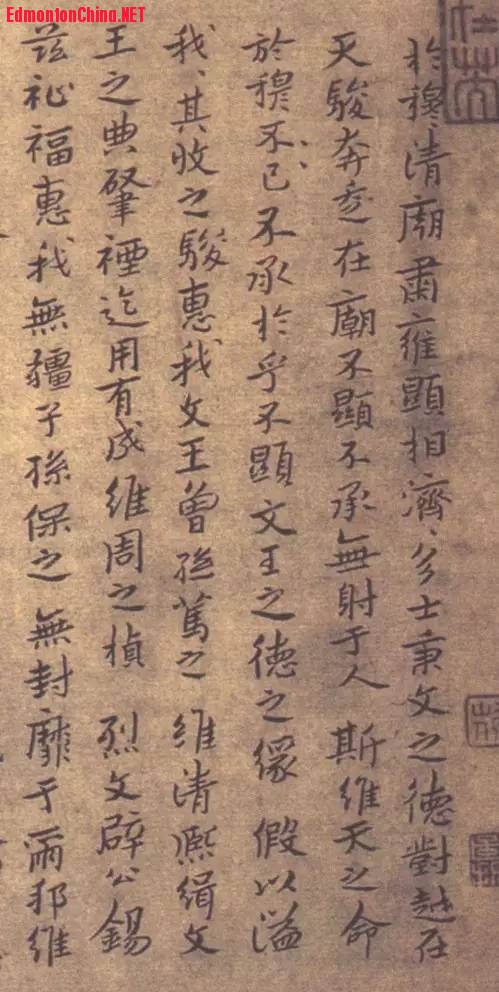 EdmontonChina.NET
於穆、清廟肅、雍顯相濟、多士秉文之德對越在
天駿奔走在廟不顯不承無射于人 斯維天之命
於穆不已不承於乎不顯文王之德之純 假以溢
我、其收之駿惠我文王曾孫篤之 維清熙緝文
王之典肇禋迄用有成維周之楨 烈文辟公錫
茲祉福惠我無疆子孫保之 無封靡于爾邦維